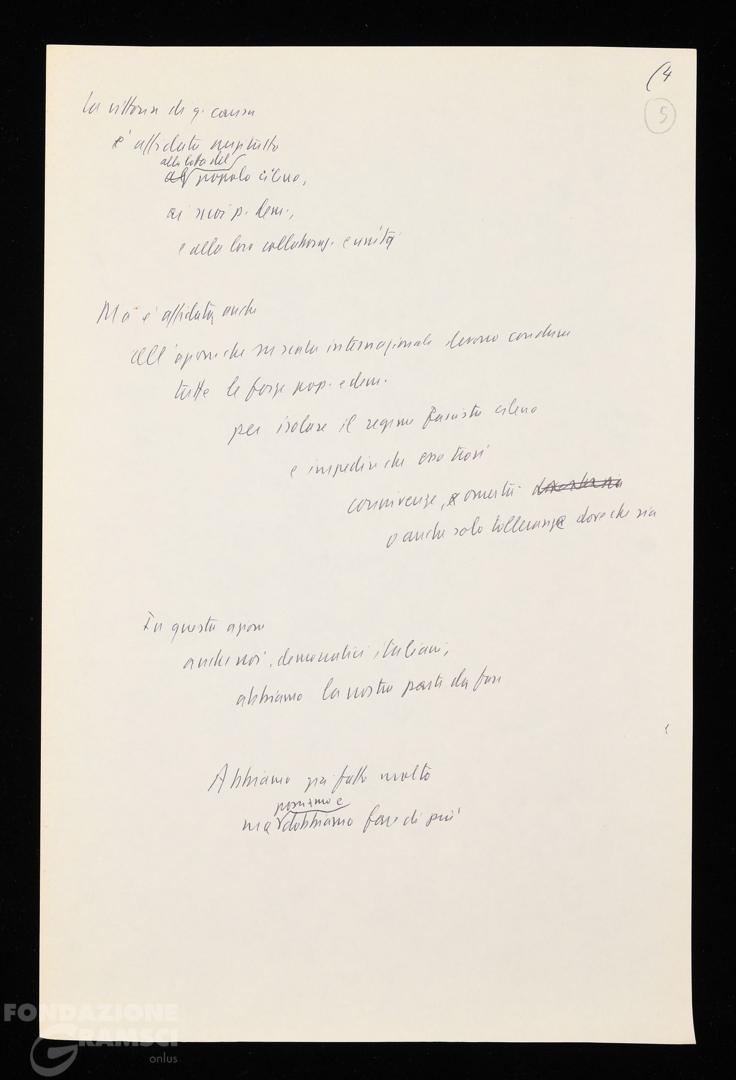 (4
5
La vittoria di q. causa
è affidata anzitutto
alla lotta del
al popolo cileno,
ai suoi p. dem.,
e alla loro collaboraz. e unità
Ma è affidata anche
all'azione che su scala internazionale devono condurre
tutte le forze pop. e dem.
per isolare il regime fascista cileno
e impedire che esso trovi
connivenze, omertà
o anche solo tolleranze dove che sia
In questa azione
anche noi, democratici italiani,
abbiamo la nostra parte da fare
Abbiamo già fatto molto
possiamo e
ma dobbiamo fare di più
FONDAZIONE
GRAMSCI
onlus